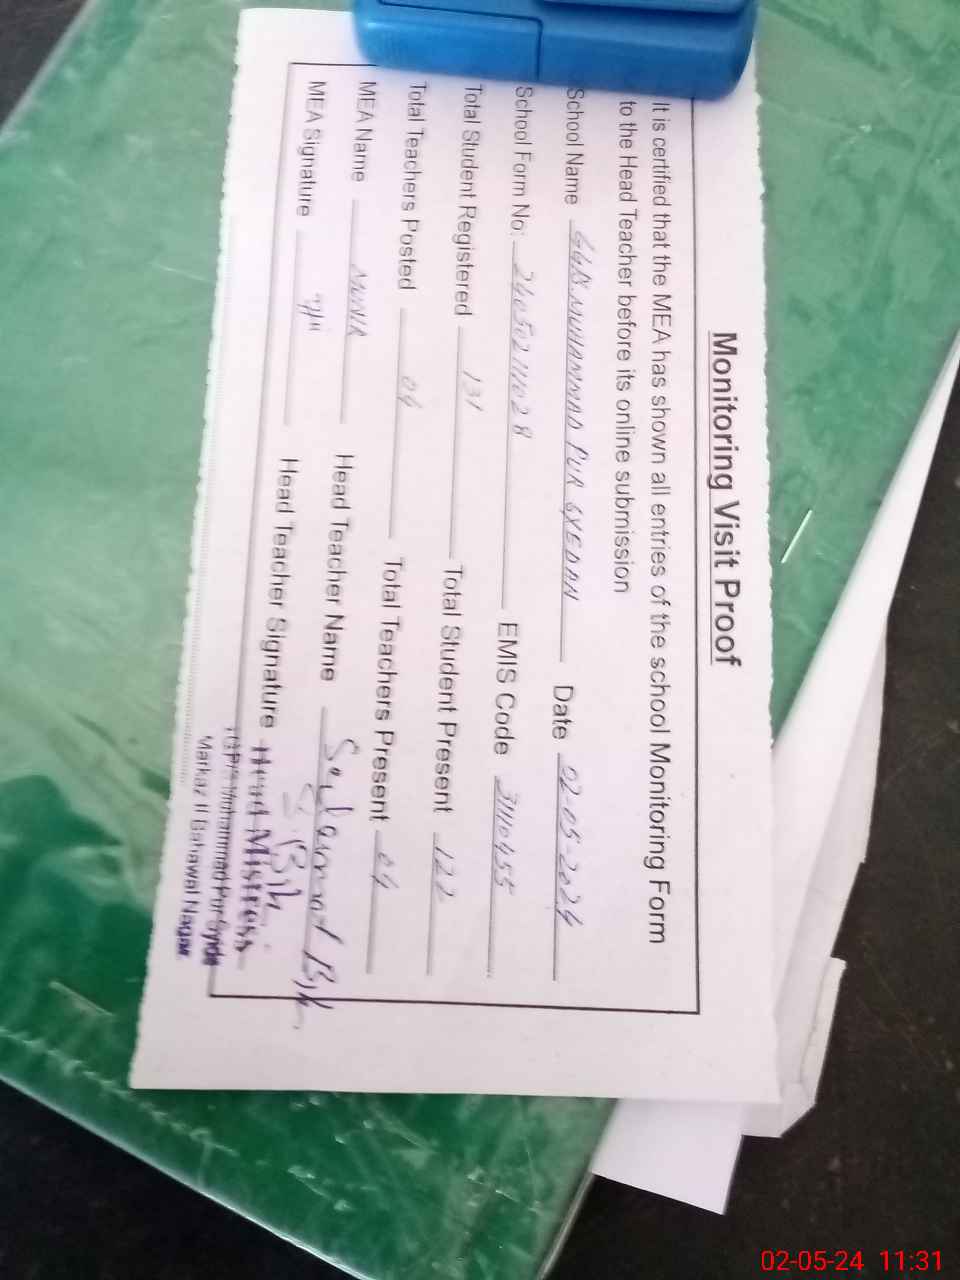 Monitoring Visit Proof
It is certified that the MEA has shown all entries of the school Monitoring Form
to the Head Teacher before its online submission
School Name MUHAMMAD PUR Date 02-05-2024
School Form No: EMIS Code 31110455
Total Student Registered 131 Total Student Present 122
Total Teachers Posted 04 Total Teachers Present 04
MEA Name MUNIR Head Teacher Name
MEA Signature Head Teacher Signature
Head Mistress
Muhammad Pur
Markaz II Bahawal Nagar
02-05-24 11:31